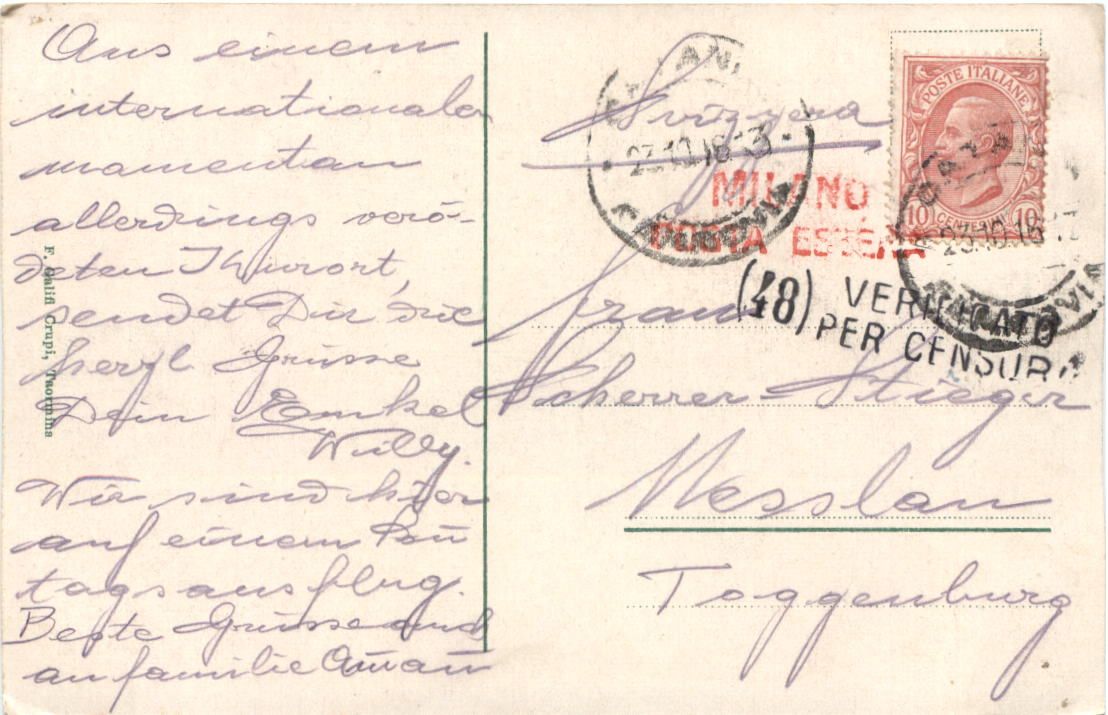 Aus einem
internationalen
momentan
allerdings verö-
deten Kurort,
sendet Dir die
herzl. Grüsse
Dein Onkel
Willy.
Wir sind hier
auf einem
tagsausflug.
Beste Grüsse auch
an familie
F. Galifi Crupi, Taormina
Svizzera
Frau
Scherrer-Stieger
Nesslau
Toggenburg
POSTE ITALIANE
10 CENTESIMI 10
23.10.16
MILANO
POSTA ESTERA
(48) VERIFICATO
PER CENSURA
23.10.16